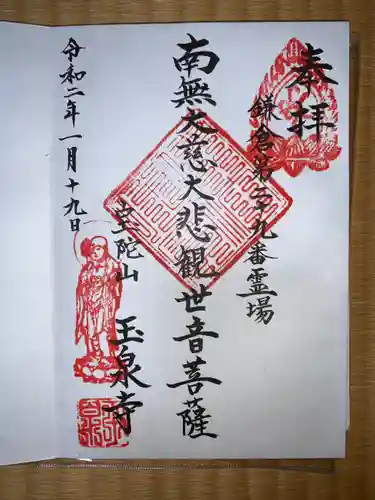 奉拝
鎌倉第二十九番霊場
南無大慈大悲観世音菩薩
宝陀山
玉泉寺
令和二年一月十九日